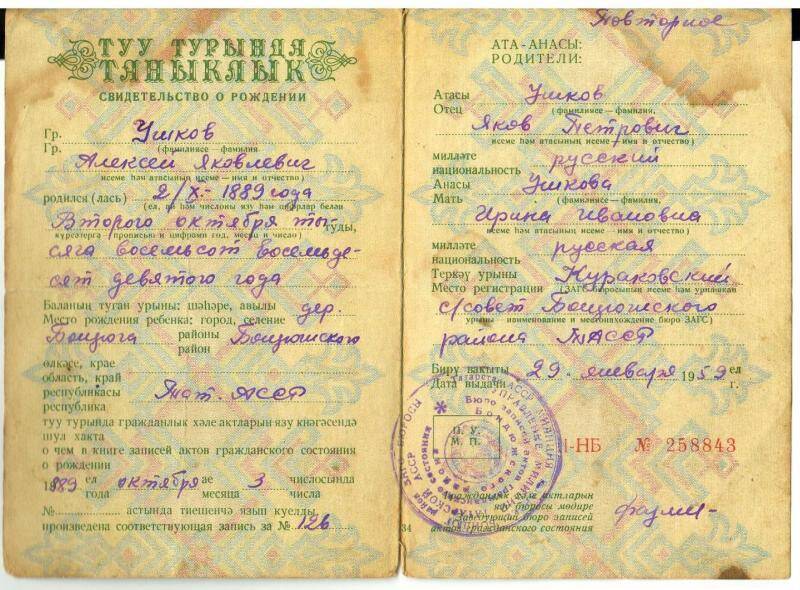 ТУУ ТУРЫНДА
ТАНЫКЛЫК
СВИДЕТЕЛЬСТВО О РОЖДЕНИИ
Гр. Ушков
Гр. (фамилиясе — фамилия)
Алексей Яковлевич
исеме һәм атасының исеме — имя и отчество)
родился (лась) 2/X - 1889 года
(ел, ай һәм числоны язу һәм цифрлар белән
Второго октября ты- туды,
күрсәтергә — прописью и цифрами год, месяц и число)
сяча восемьсот восемьде-
сят девятого года
Баланың туган урыны: шәһәре, авылы дер.
Место рождения ребенка: город, селение
Бондюга районы Бондюжского
район
өлкәсе, крае
область, край
республикасы Тат. АССР
республика
туу турында гражданлык хәле актларын язу кнәгәсендә
шул хакта
о чем в книге записей актов гражданского состояния
о рождении
1889 ел октября ае 3 числосында
года месяца числа
№ астында тиешенчә язып куелды.
произведена соответствующая запись за № 126
Повторное
АТА-АНАСЫ:
РОДИТЕЛИ:
Атасы Ушков
Отец (фамилиясе — фамилия,
Яков Петрович
исеме һәм атасының исеме — имя и отчество)
милләте русский
национальность
Анасы Ушкова
Мать (фамилиясе — фамилия,
Ирина Ивановна
исеме һәм атасының исеме — имя и отчество)
милләте русская
национальность
Теркәү урыны
Место регистрации (ЗАГС бюросының исеме һәм урнашкан
с/совет Бондюжского
урыны — наименование и местонахождение бюро ЗАГС)
района ТАССР
Бирү вакыты 29 января 1959 ел
Дата выдачи г.
П. У.
М. П.
II-НБ № 258843
Гражданлык хәле актларын
язу бюросы мөдире
Заведующий бюро записей
актов гражданского состояния
34